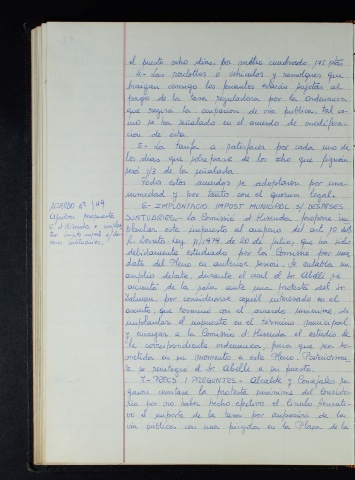 el puesto ocho días, por metro cuadrado, 175 ptas
4.- Las roulottes o vehículos y remolques que
traigan consigo los feriantes estarán sujetos al
pago de la tasa reguladora por la Ordenanza
que regula la ocupación de vía publica, tal co-
mo se ha señalado en el acuerdo de modifica-
cion de esta
5.- La tarifa a satisfacer por cada uno de
los dias que sobrepase de los ocho que figuran
será 1/3 de la señalada
Todos estos acuerdos se adoptaron por una-
nimidad y por tanto con el quorum legal.
ACUERDO nº
6.- IMPLANTACIO IMPOST MUNICIPAL S/ DESPESES
SUNTUARIES.- La Comissió d'Hisenda, propone im-
plantar este impuesto al amparo del art.
R. Decreto Ley 11/1979 de 20 de julio, que ha sido
debidamente estudiado por la Comisión por man-
dato del Pleno en anterior sesión. Se entabla un
amplio debate, durante el cual el Sr Abelló se
ausentó de la sala ante una protesta del Sr.
por considerarse aquél interesado en el
asunto, que terminó con el acuerdo unánime, de
implantar el impuesto en el término municipal
y encargar a la Comissió d'Hisenda el estudio de
la correspondiente ordenanza, para que sea so-
metida en su momento a este Pleno. Posteriormen-
te se reintegró el Sr Abelló a su puesto.
7.- PRECS I PREGUNTES.- Alcalde y Concejales
constara la protesta unánime del Consisto-
rio por no haber hecho efectivo el Circulo Recreati-
vo el importe de la tasa por ocupación de la
via publica con una pérgola en la Plaza de la